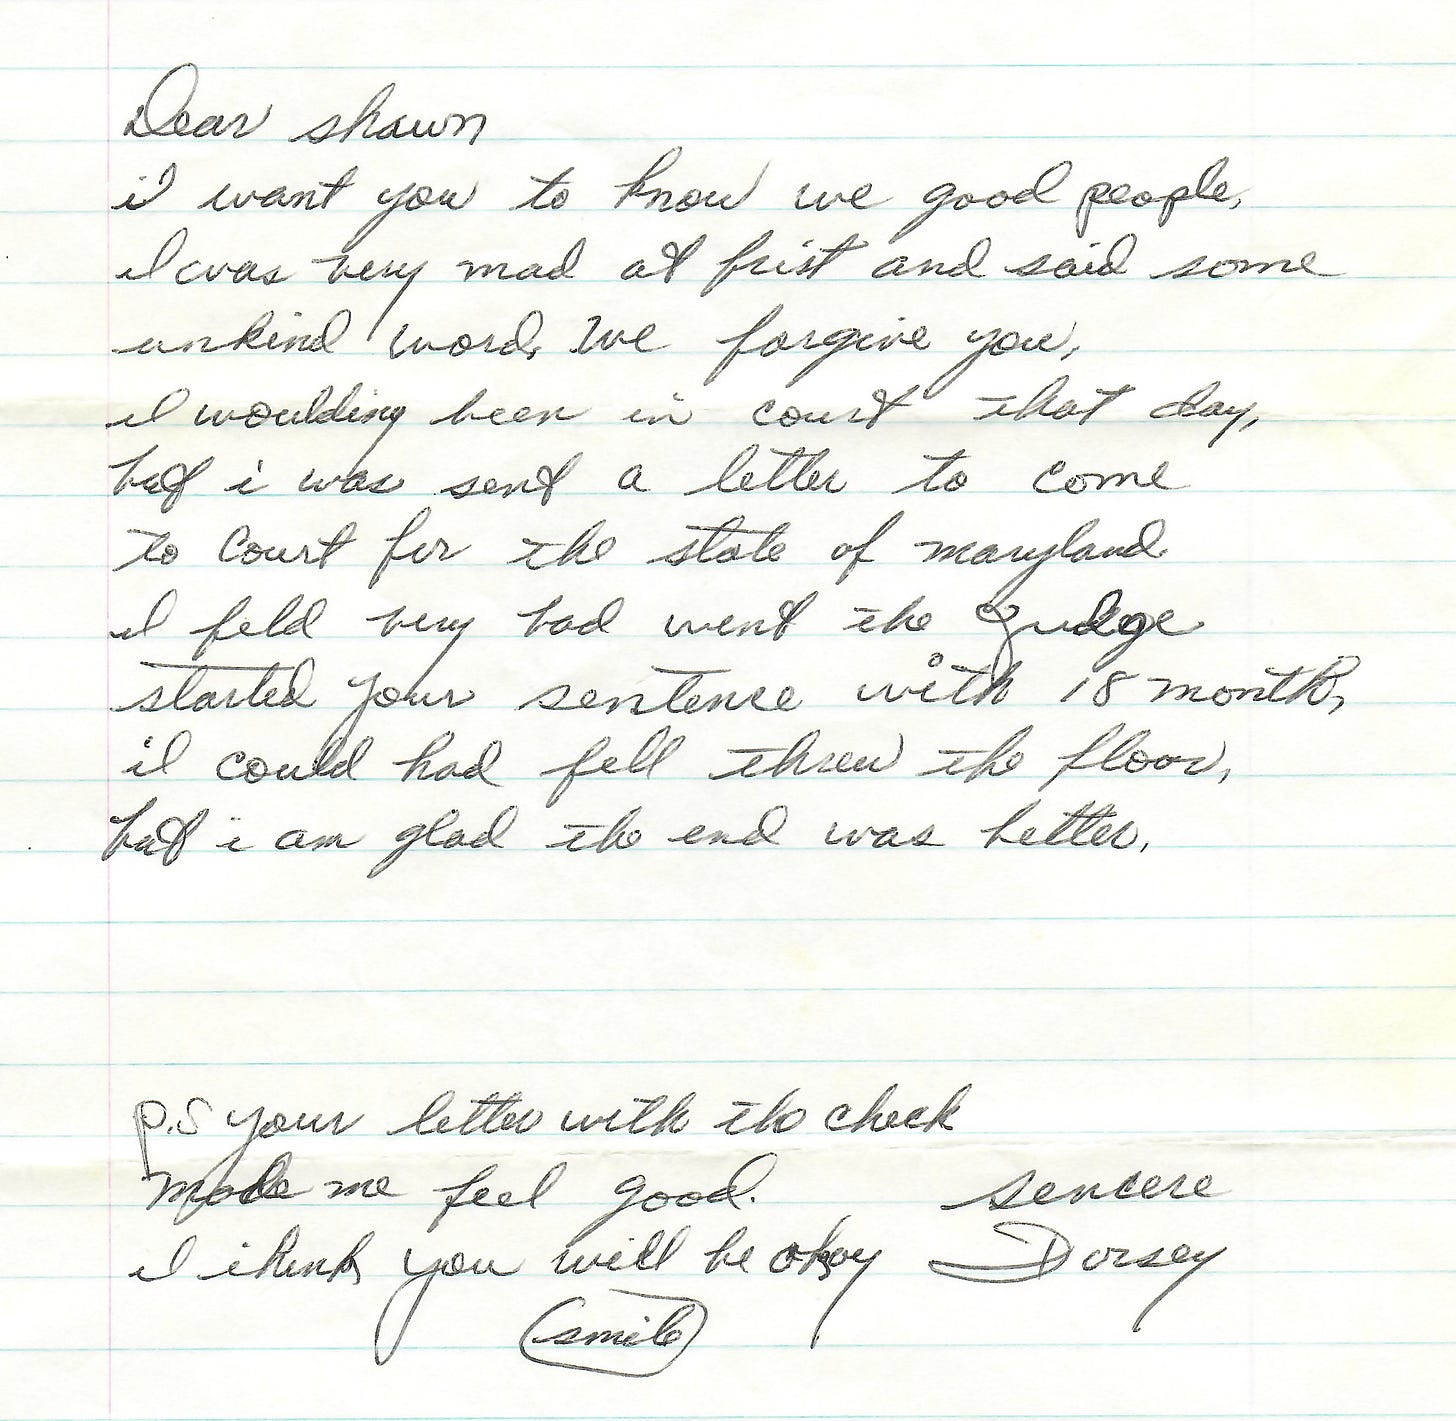 Dear shawn
i want you to know we good people,
I was very mad at frist and said some
unkind word, We forgive you,
I woulding been in court that day,
but i was sent a letter to come
to Court for the state of maryland
I feld very bad went the Judge
started your sentence with 18 month,
i could had fell threw the floor,
but i am glad the end was better,
p.s your letter with the check
made me feel good.
sencere
I think you will be okay
Dorsey
smile